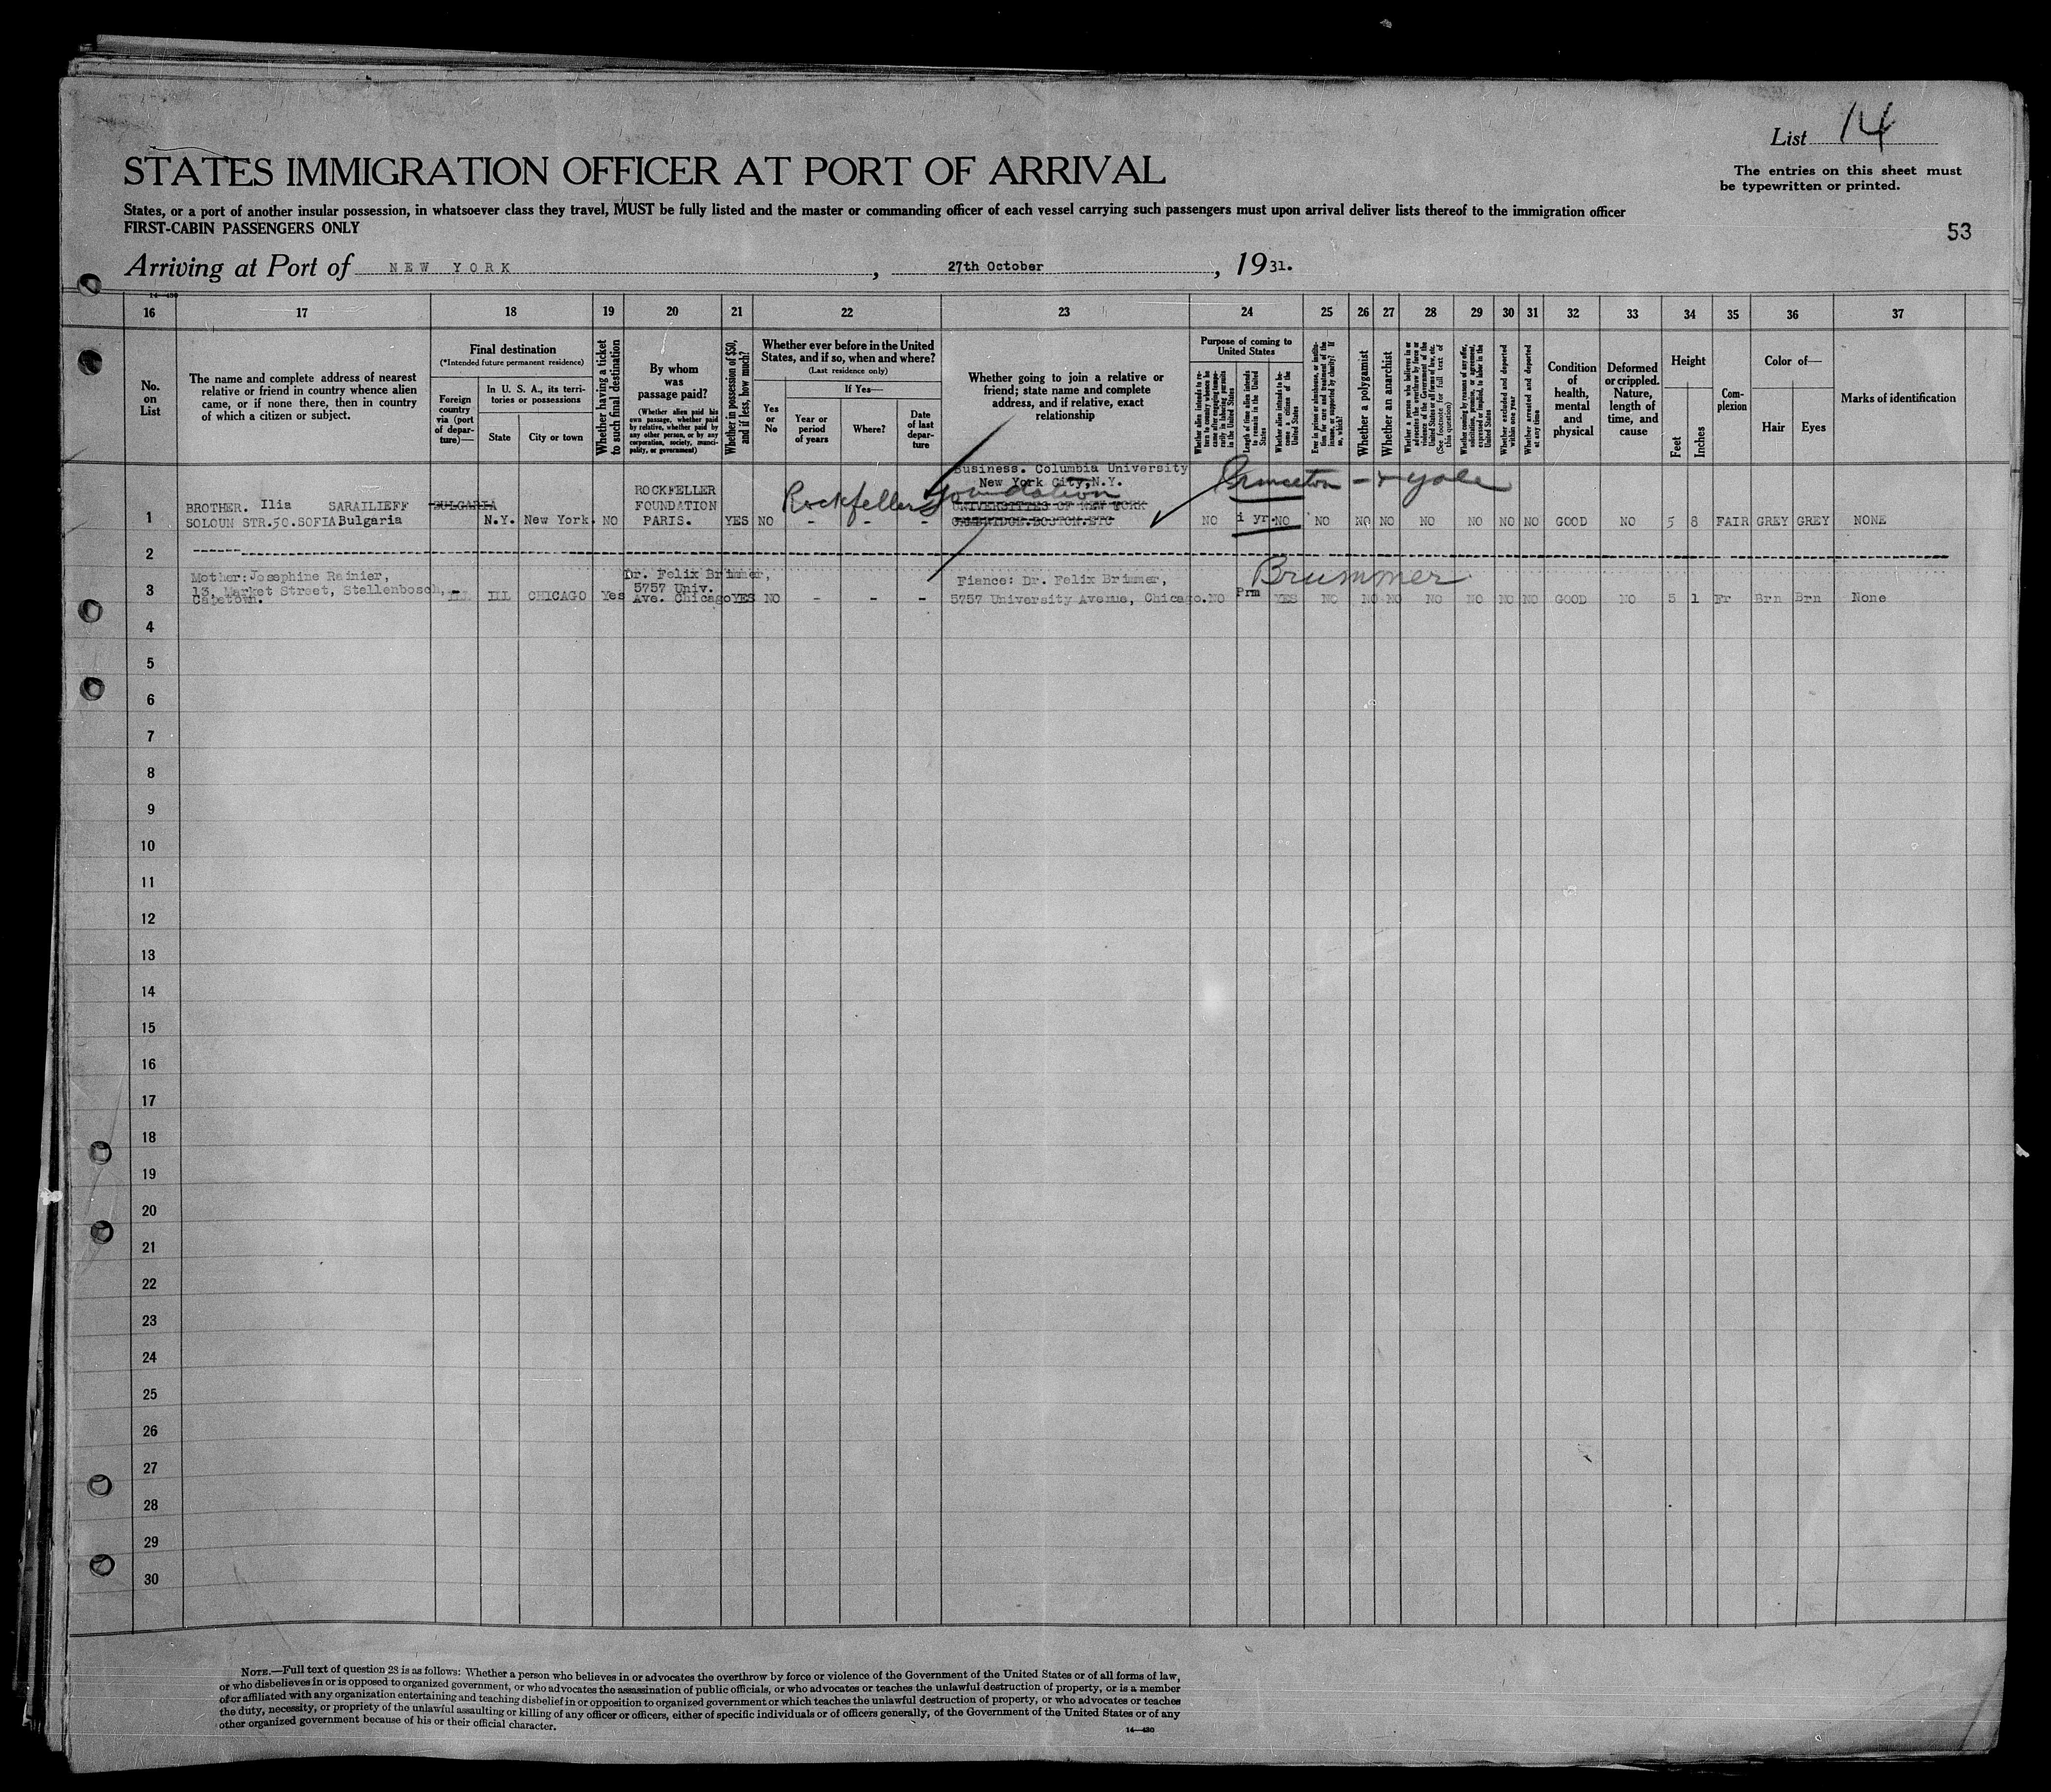 List 14
STATES IMMIGRATION OFFICER AT PORT OF ARRIVAL
The entries on this sheet must
be typewritten or printed.
States, or a port of another insular possession, in whatsoever class they travel, MUST be fully listed and the master or commanding officer of each vessel carrying such passengers must upon arrival deliver lists thereof to the immigration officer
FIRST-CABIN PASSENGERS ONLY
53
Arriving at Port of NEW YORK, 27th October, 1931.
14—430
16 17 18 19 20 21 22 23 24 25 26 27 28 29 30 31 32 33 34 35 36 37
No.
on
List
The name and complete address of nearest
relative or friend in country whence alien
came, or if none there, then in country
of which a citizen or subject.
Final destination
(*Intended future permanent residence)
Foreign
country
via (port
of depar-
ture)—
In U. S. A., its terri-
tories or possessions
State
City or town
Whether having a ticket
to such final destination
By whom
was
passage paid?
(Whether alien paid his
own passage, whether paid
by relative, whether paid
by any other person, or by any
corporation, society, munici-
pality, or government)
Whether in possession of $50,
and if less, how much?
Whether ever before in the United
States, and if so, when and where?
(Last residence only)
Yes
or
No
If Yes—
Year or
period
of years
Where?
Date
of last
depar-
ture
Whether going to join a relative or
friend; state name and complete
address, and if relative, exact
relationship
Purpose of coming to
United States
Whether alien intends to re-
turn to country whence he
came after engaging tempo-
rarily in laboring pursuits
in the United States
Length of time alien intends
to remain in the United
States
Whether alien intends to be-
come a citizen of the
United States
Ever in prison or almshouse, or institu-
tion for care and treatment of the
insane, or supported by charity? If
so, which?
Whether a polygamist
Whether an anarchist
Whether a person who believes in or
advocates the overthrow by force or
violence of the Government of the
United States or all forms of law, etc.
(See footnote for full text of
this question)
Whether coming by reason of any offer,
solicitation, promise, or agreement,
expressed or implied, to labor in the
United States
Whether excluded and deported
within one year
Whether arrested and deported
at any time
Condition
of
health,
mental
and
physical
Deformed
or crippled.
Nature,
length of
time, and
cause
Height
Feet
Inches
Com-
plexion
Color of—
Hair
Eyes
Marks of identification
Business. Columbia University
New York City, N.Y.
Princeton - + Yale
Rockfellers Foundation
1
BROTHER. Ilia SARAILIEFF
SOLOUN STR.50.SOFIA Bulgaria
BULGARIA
N.Y. New York. NO
ROCKFELLER
FOUNDATION
PARIS.
YES NO - - -
UNIVERSITIES OF NEW YORK
CAMBRIDGE.BOSTON.ETC
NO 1 yr. NO NO NO NO NO NO NO NO GOOD NO 5 8 FAIR GREY GREY NONE
2
Brummer
3
Mother: Josephine Rainier,
13, Market Street, Stellenbosch,
Capetown.
ILL ILL CHICAGO Yes
Dr. Felix Brimmer,
5757 Univ.
Ave. Chicago
YES NO - - -
Fiance: Dr. Felix Brimmer,
5757 University Avenue, Chicago.
NO Prm YES NO NO NO NO NO NO NO GOOD NO 5 1 Fr Brn Brn None
4
5
6
7
8
9
10
11
12
13
14
15
16
17
18
19
20
21
22
23
24
25
26
27
28
29
30
NOTE.—Full text of question 28 is as follows: Whether a person who believes in or advocates the overthrow by force or violence of the Government of the United States or of all forms of law,
or who disbelieves in or is opposed to organized government, or who advocates the assassination of public officials, or who advocates or teaches the unlawful destruction of property, or is a member
of or affiliated with any organization entertaining and teaching disbelief in or opposition to organized government or which teaches the unlawful destruction of property, or who advocates or teaches
the duty, necessity, or propriety of the unlawful assaulting or killing of any officer or officers, either of specific individuals or of officers generally, of the Government of the United States or of any
other organized government because of his or their official character.
14—430